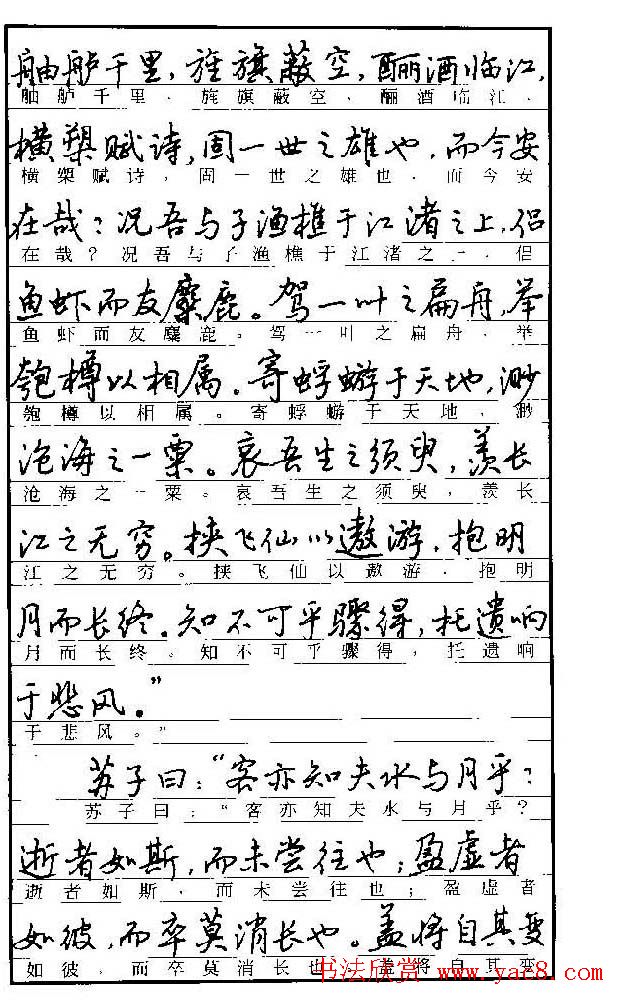 舳舻千里，旌旗蔽空，酾酒临江，
舳舻千里，旌旗蔽空，酾酒临江，
横槊赋诗，固一世之雄也，而今安
横槊赋诗，固一世之雄也，而今安
在哉？况吾与子渔樵于江渚之上，侣
在哉？况吾与子渔樵于江渚之上，侣
鱼虾而友麋鹿。驾一叶之扁舟，举
鱼虾而友麋鹿。驾一叶之扁舟，举
匏樽以相属。寄蜉蝣于天地，渺
匏樽以相属。寄蜉蝣于天地，渺
沧海之一粟。哀吾生之须臾，羡长
沧海之一粟。哀吾生之须臾，羡长
江之无穷。挟飞仙以遨游，抱明
江之无穷。挟飞仙以遨游，抱明
月而长终。知不可乎骤得，托遗响
月而长终。知不可乎骤得，托遗响
于悲风。”
于悲风。”
苏子曰：“客亦知夫水与月乎？
苏子曰：“客亦知夫水与月乎？
逝者如斯，而未尝往也；盈虚者
逝者如斯，而未尝往也；盈虚者
如彼，而卒莫消长也。盖将自其变
如彼，而卒莫消长也。盖将自其变
书法欣赏 www.yac8.com